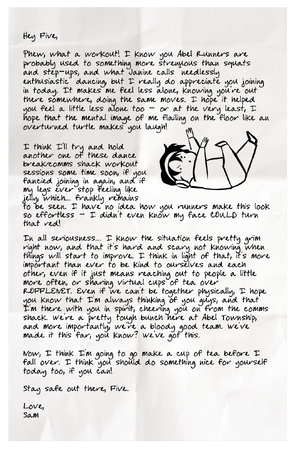 Hey Five,
Phew, what a workout! I know you Abel Runners are
probably used to something more strenuous than squats
and step-ups, and what Janine calls needlessly
enthusiastic dancing, but I really do appreciate you joining
in today. It makes me feel less alone, knowing you're out
there somewhere, doing the same moves. I hope it helped
you feel a little less alone too – or at the very least, I
hope that the mental image of me flailing on the floor like an
overturned turtle makes you laugh!
I think I'll try and hold
another one of these dance
break/comms shack workout
sessions some time soon, if you
fancied joining in again, and if
my legs ever stop feeling like
jelly, which... frankly remains
to be seen. I have no idea how you runners make this look
so effortless – I didn't even know my face COULD turn
that red!
In all seriousness... I know the situation feels pretty grim
right now, and that it's hard and scary not knowing when
things will start to improve. I think in light of that, it's more
important than ever to be kind to ourselves and each
other, even if it just means reaching out to people a little
more often, or sharing virtual cups of tea over
ROFFLENET. Even if we can't be together physically, I hope
you know that I'm always thinking of you guys, and that
I'm there with you in spirit, cheering you on from the comms
shack. We're a pretty tough bunch here at Abel Township,
and more importantly, we're a bloody good team. We've
made it this far, you know? We've got this.
Now, I think I'm going to go make a cup of tea before I
fall over. I think you should do something nice for yourself
today too, if you can!
Stay safe out there, Five.
Love,
Sam